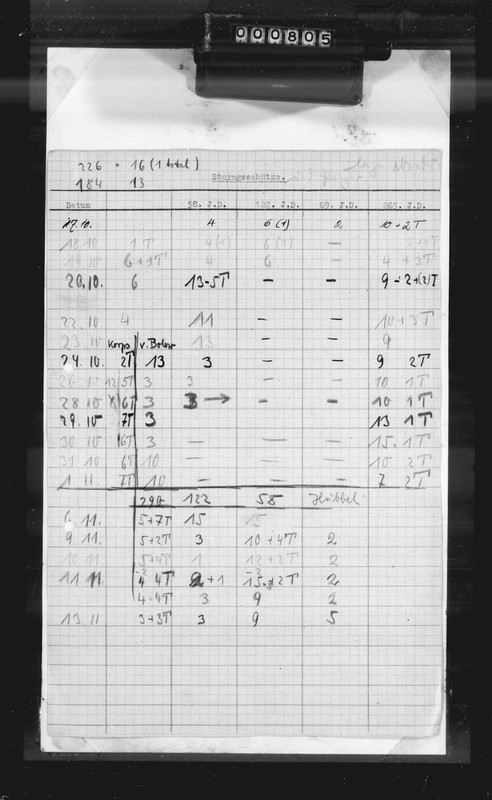 000805
226 = 16 (1 total)
184 13
Sturmgeschütze.
Datum 58. J.D. 122. J.D. 69. J.D. 263. J.D.
17.10. 4 6 (1) 2 10 + 2T
18.10. 1T 4 (1) 6 (1) —
19.10. 6+1T 4 6 — 4 + 3T
20.10. 6 13-5T — —
22.10 4 11 — — 10+3T
23.10 13 — — 9
Korps v. Below
24.10. 2T 13 3 — — 9 2T
26 10 5T 3 3 — — 10 1T
28 10 6T 3 3 → — — 10 1T
29.10 7T 3 13 1T
30 10 6T 3 — — — 15. 1T
31 10 6T 10 — — — 10 2T
1. 11. 7T 10 — — — 7 2T
290 122 58
6. 11. 5+7T 15 15
9. 11. 5+2T 3 10+4T 2
10 11 5+4T 1 12+2T 2
11 11 4 4T 2+1 2
4+4T 3 9 2
13 11 3+3T 3 9 5